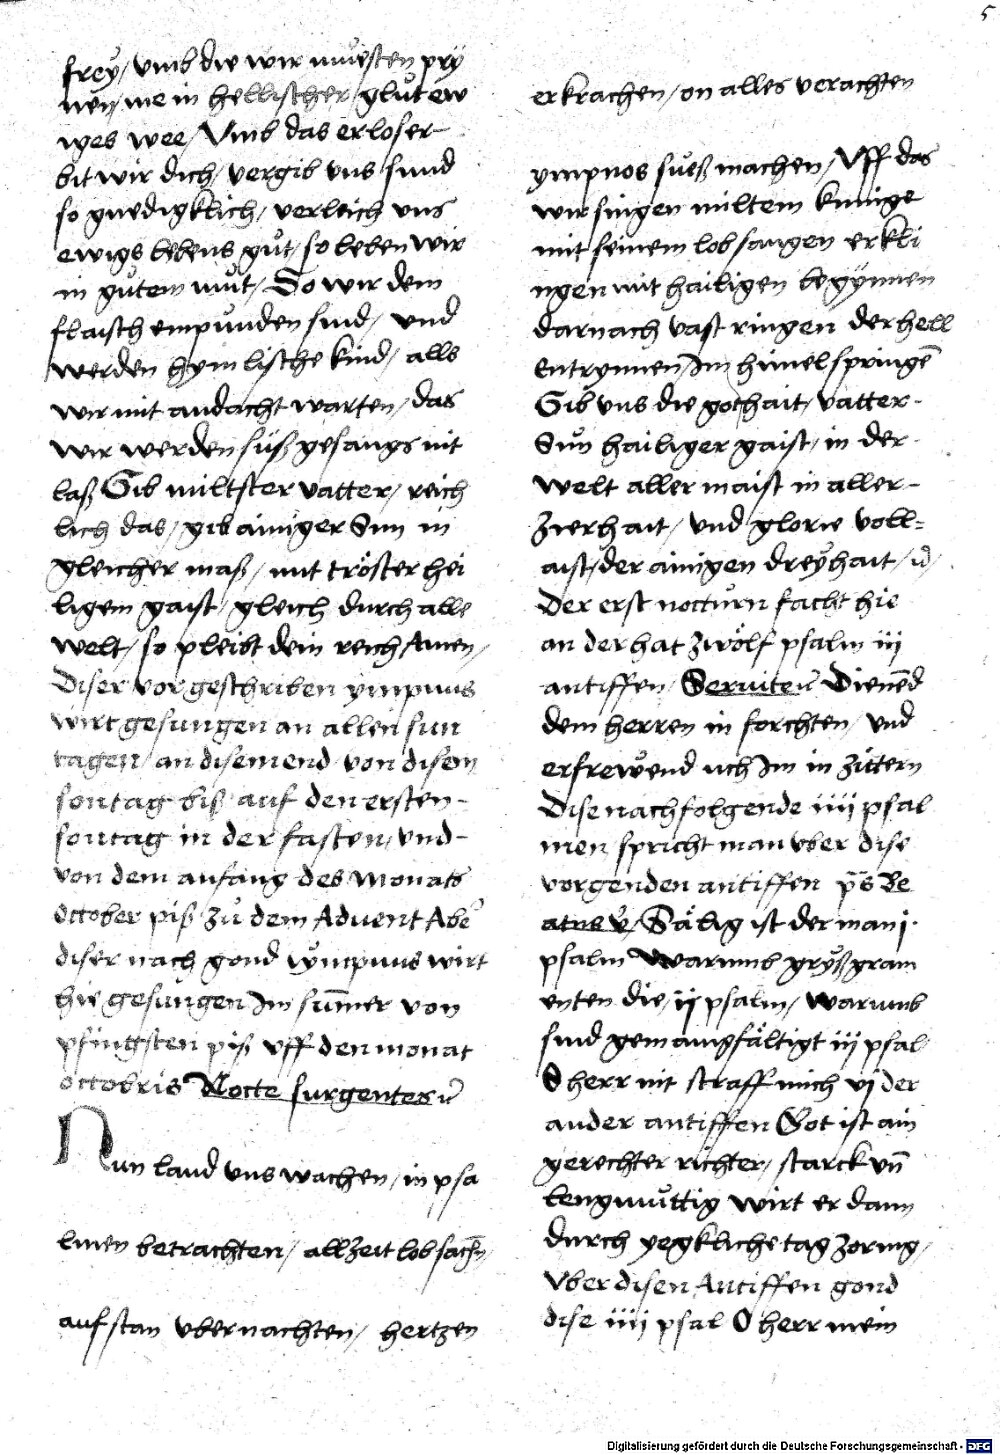 5
frey / vmb die wir müesten pry
nen / me in hellischer / glut ew
iges wee / Vmb das erloser
bit wir dich / vergib vns sund
so gnedigklich / verleich vns
ewigs lebens gůt / so leben wir
in gůtem můt / So wir dem
flaisch empunden sind / vnd
werden hymlische kind / alls
wir mit andacht warten / das
wir werden süß gesangs nit
laß Gib miltster vatter / reich
lich das / gib ainiger Sun in
gleicher maß / mit tröster hei
ligem gaist / gleich durch alle
welt / so pleibt dein reich Amen /
Diser vorgeschriben ympnus
wirt gesungen an allen sun
tagen / an disem end von disem
sontag biß auf den ersten
sontag in der fasten / vnd
von dem anfang des monats
October piß zů dem Advent Abē
diser nach gond ympnus wirt
hie gesungen Im sum̄er von
pfingsten piß vff den monat
octobris Nocte surgentes
Nun land vns wachen / in psa
lmen betrachten / allzeit lob sachn̄ /
auf stan vber nachten / hertzen
erkrachen / on alles verachten
ympnos sueß machen / Vff das
wir singen miltem kunige
mit seinem lob sangen erkli
ngen mit hailigen begynnen
darnach vast ringen der hell
entrynnen / Im himel springē
Gib vns die gothait / vatter
Sun hailiger gaist / in der
welt aller maist in aller
zierhait / vnd glorie voll=
aist / der ainigen dreyhait /
Der erst nocturn facht hie
an der hat zwölf psalm iij
antiffen / Seruite Dienēd
dem herren in forchten / vnd
erfrewend uch Im in zittern
Dise nachfolgende iiij psal
men spricht man vber dise
vorgenden antiffen ps Be
atus v̄ / Sälig ist der man j.
psalm Warumb gryßgram
enten die / ij psalm / Warumb
sind gemanigfältigt iij psal
O herr nit straff mich vj der
ander antiffen Got ist ain
gerechter richter / starck vn̄
lengmuttig wirt er dann
durch yegkliche tag zornig /
Vber disen Antiffen gond
dise iiij psal O herr mein
Digitalisierung gefördert durch die Deutsche Forschungsgemeinschaft - DFG